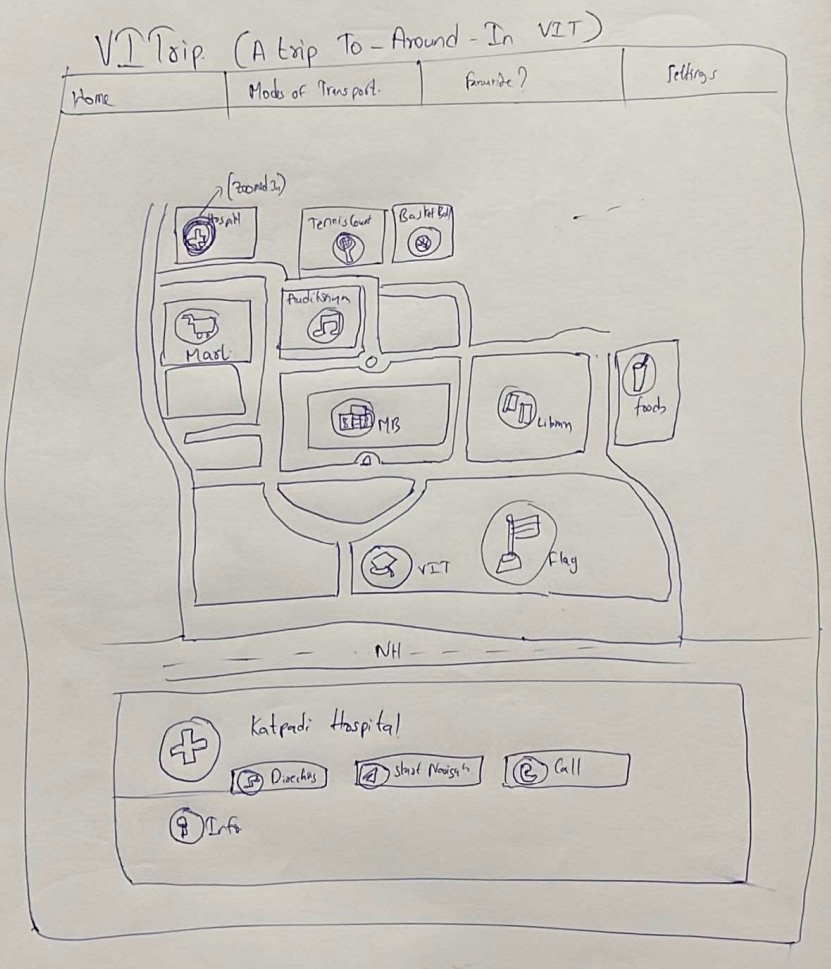 VITrip. (A trip To - Around - In VIT)
Home
Modes of Transport.
Favourite?
Settings
(Zoomed In)
Hospitl
Tennis Court
BasketBall
Auditorium
Mart
MB
Library
foods
VIT
Flag
NH
Katpadi Hospital
Directions
Start Navigatn
Call
Info